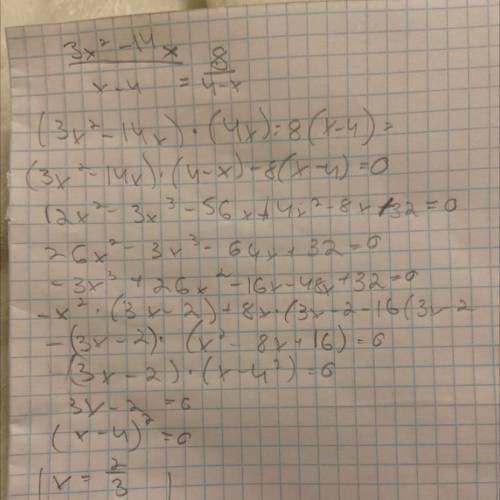 3x² - 14x / x-4 = 8 / 4-x
(3x² - 14x) · (4x) = 8(x-4) =
(3x² - 14x) · (4-x) - 8(x-4) = 0
12x² - 3x³ - 56x + 14x² - 8x + 32 = 0
26x² - 3x³ - 64x + 32 = 0
-3x³ + 26x² - 16x - 48x + 32 = 0
-x² · (3x-2) + 8x · (3x-2 - 16(3x-2
-(3x-2) · (x² - 8x + 16) = 0
(3x-2) · (x-4²) = 0
3x-2 = 0
(x-4)² = 0
x = 2/3